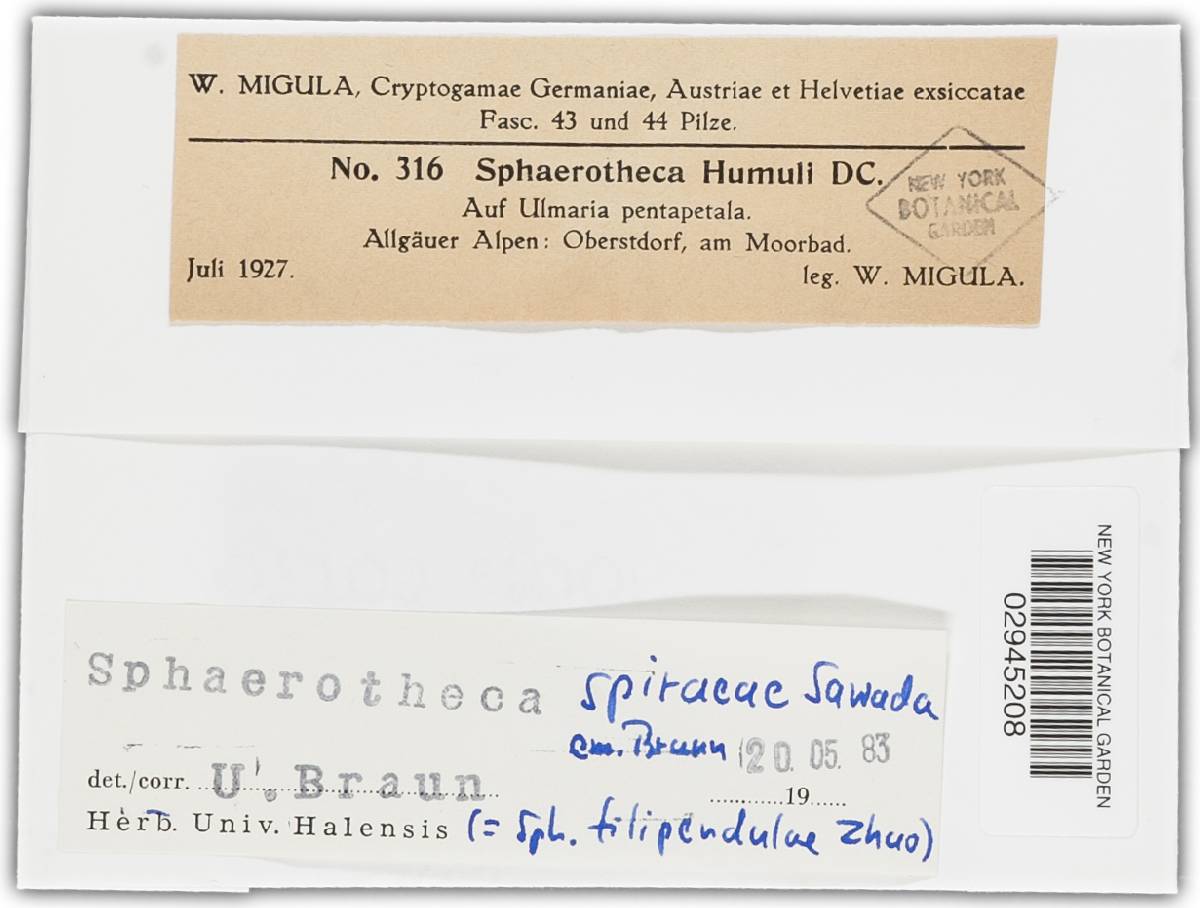 W. MIGULA, Cryptogamae Germaniae, Austriae et Helvetiae exsiccatae
Fasc. 43 und 44 Pilze.
No. 316 Sphaerotheca Humuli DC.
Auf Ulmaria pentapetala.
Allgäuer Alpen: Oberstdorf, am Moorbad.
Juli 1927. leg. W. MIGULA.
NEW YORK
BOTANICAL
GARDEN
NEW YORK BOTANICAL GARDEN
02945208
Sphaerotheca spiraeae Sawada
em. Braun 20. 05. 83
det./corr. U. Braun ............19......
Herb. Univ. Halensis (= Sph. filipendulae Zhao)